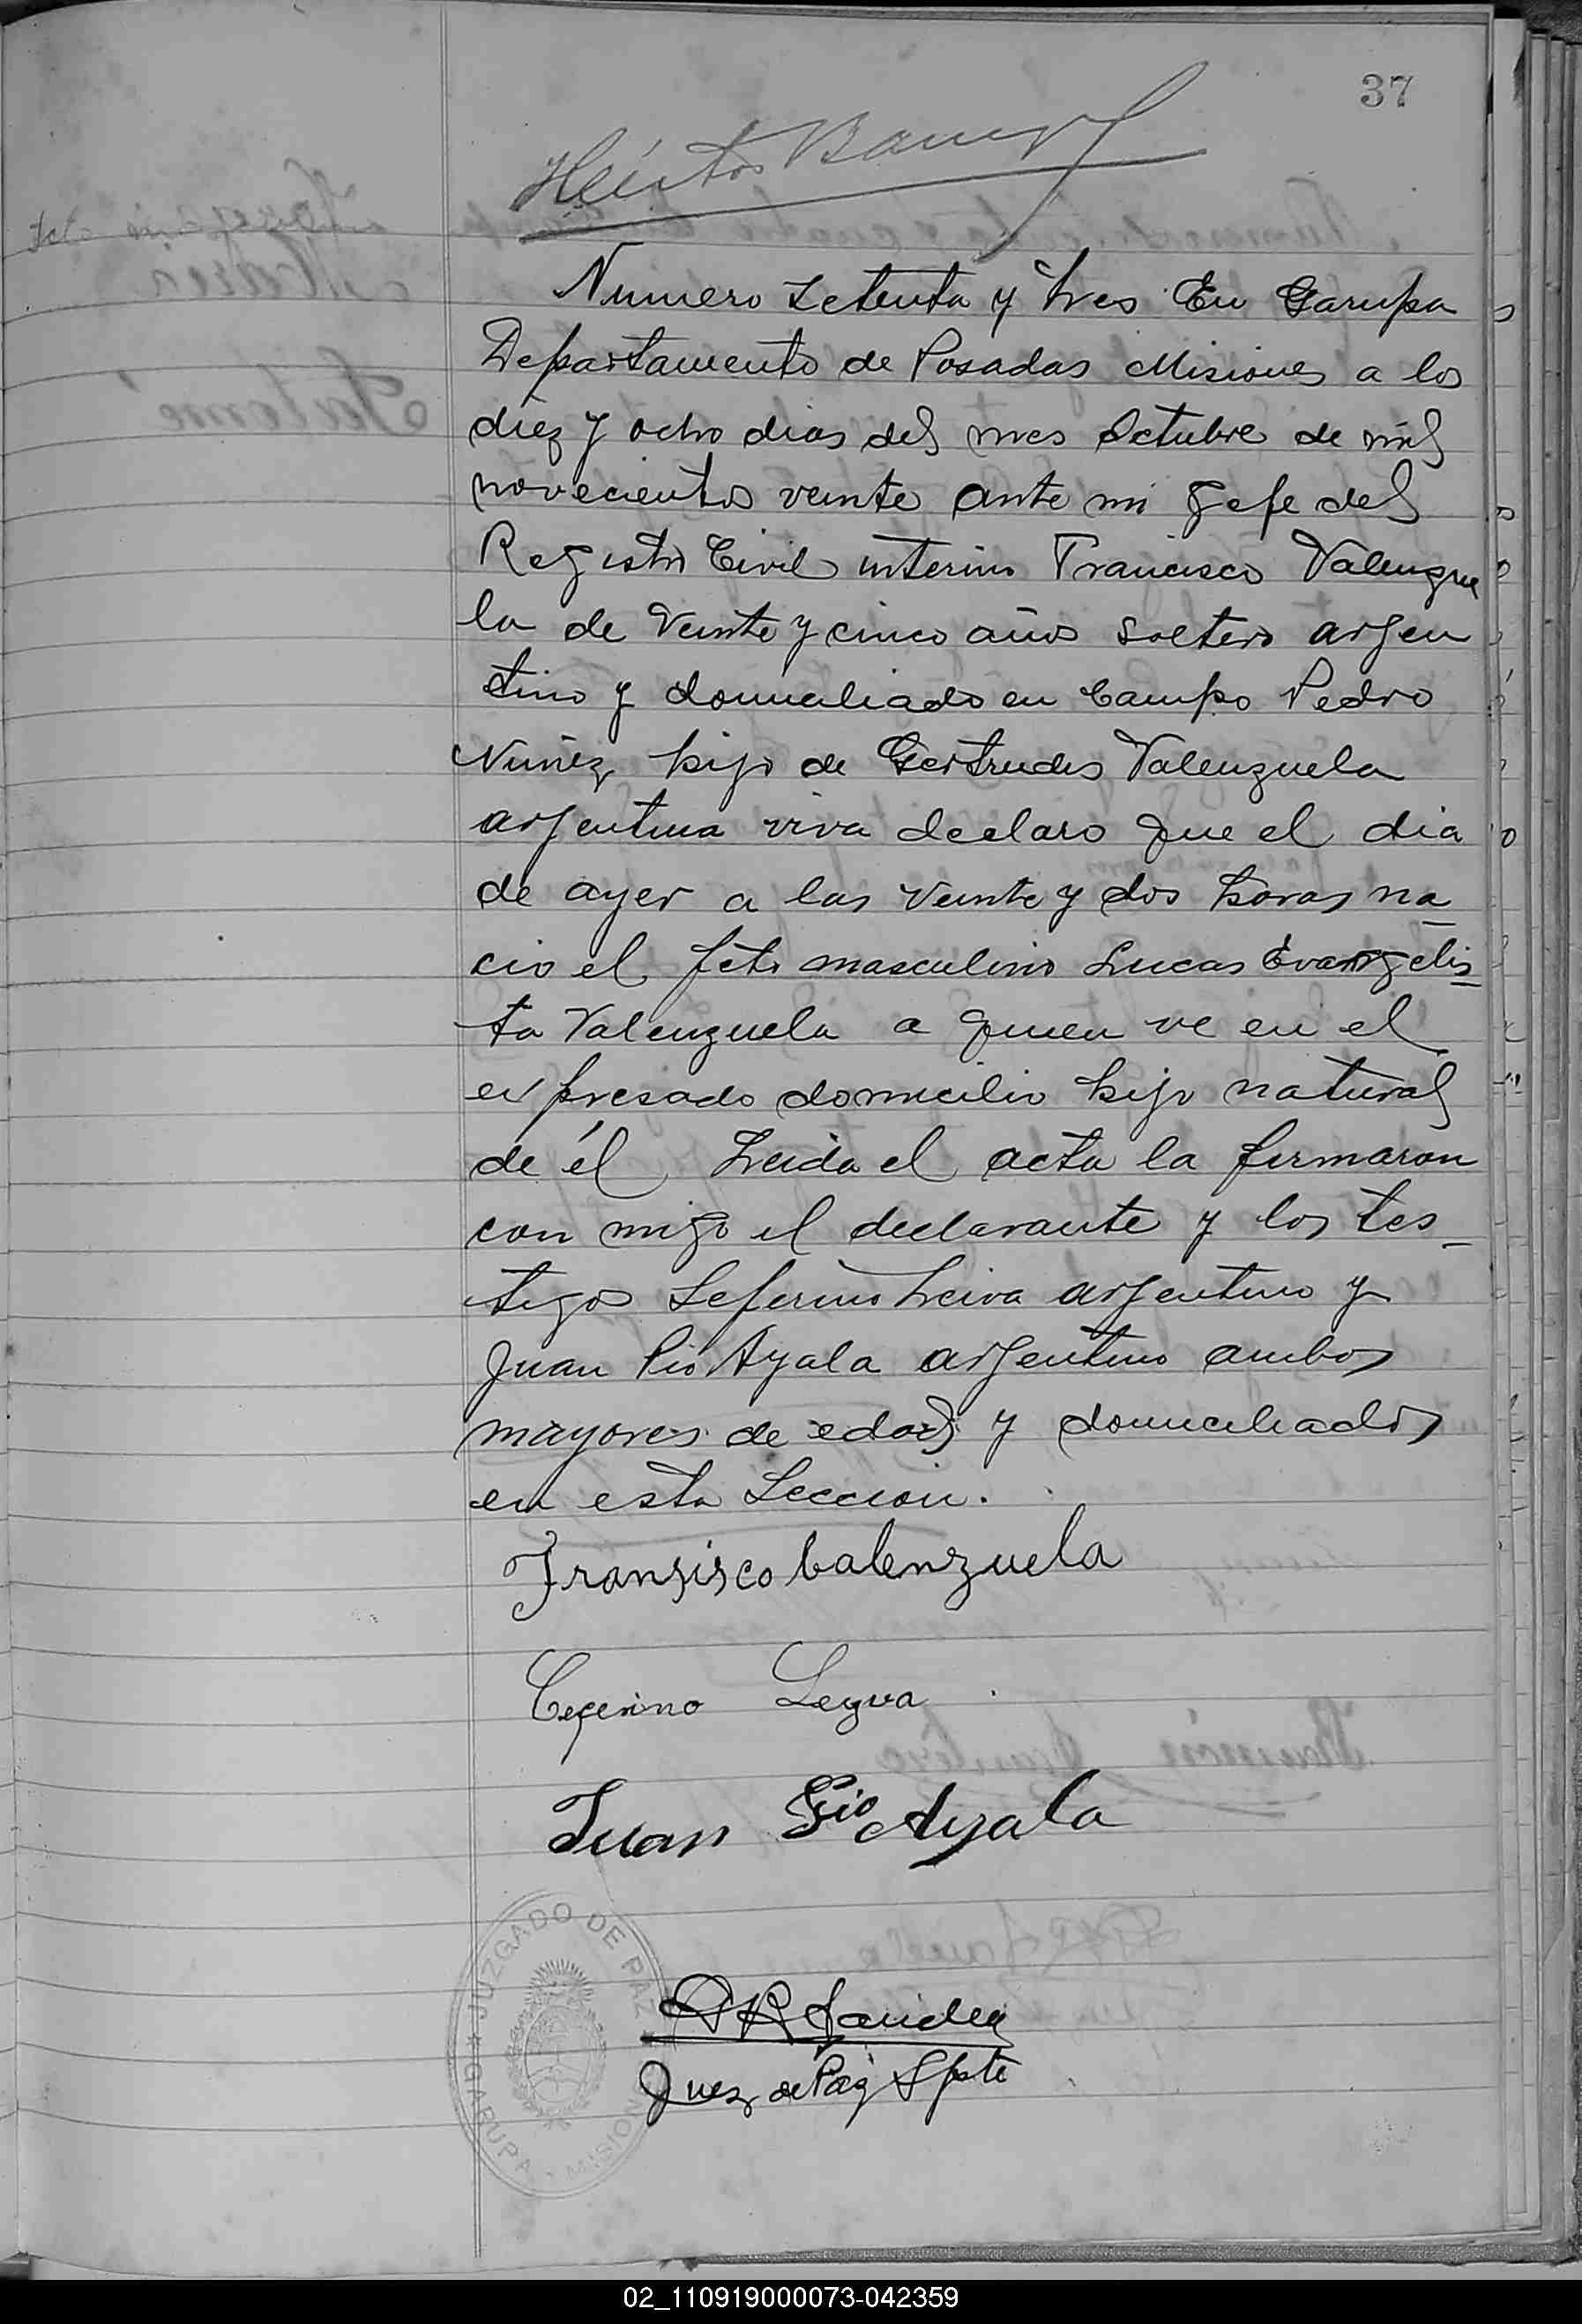 37
Numero Setenta y tres En Garupa
Departamento de Posadas Misiones a los
diez y ocho dias del mes Octubre de mil
novecientos veinte ante mi Gefe del
Registro Civil interino Francisco Valenzue
la de Veinte y cinco años soltero argen
tino y domiciliado en Campo Pedro
Nuñez hijo de Gertrudes Valenzuela
argentina viva declaro que el dia
de ayer a las Veinte y dos horas na_
cio el feto masculino Lucas Evangelis_
ta Valenzuela a quien ve en el
expresado domicilio hijo natural
de él Leida el acta la firmaron
con migo el declarante y los tes_
tigos Seferino Leiva argentino y
Juan Pio Ayala argentino ambos
mayores de edad y domiciliados
en esta Seccion.
Fransisco balenzuela
Ceferino Leyva
Juan Pio Ayala
JUZGADO DE PAZ
GARUPA MISIONES
Juez de Paz Spte
02_110919000073-042359